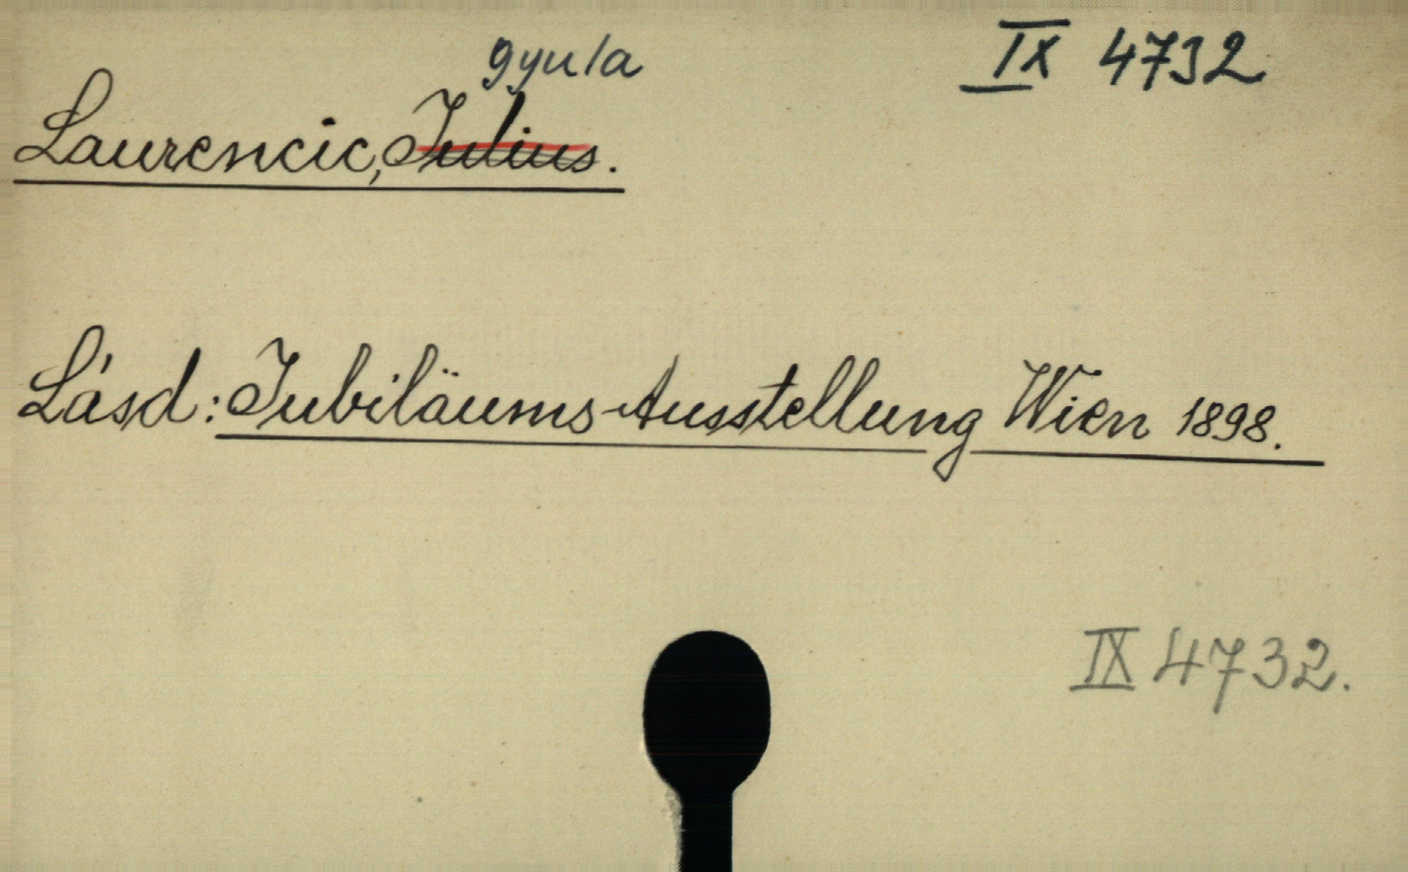 gyula
IX 4732
Laurencic, Julius.
Lásd: Jubiläums-Ausstellung Wien 1898.
IX 4732.